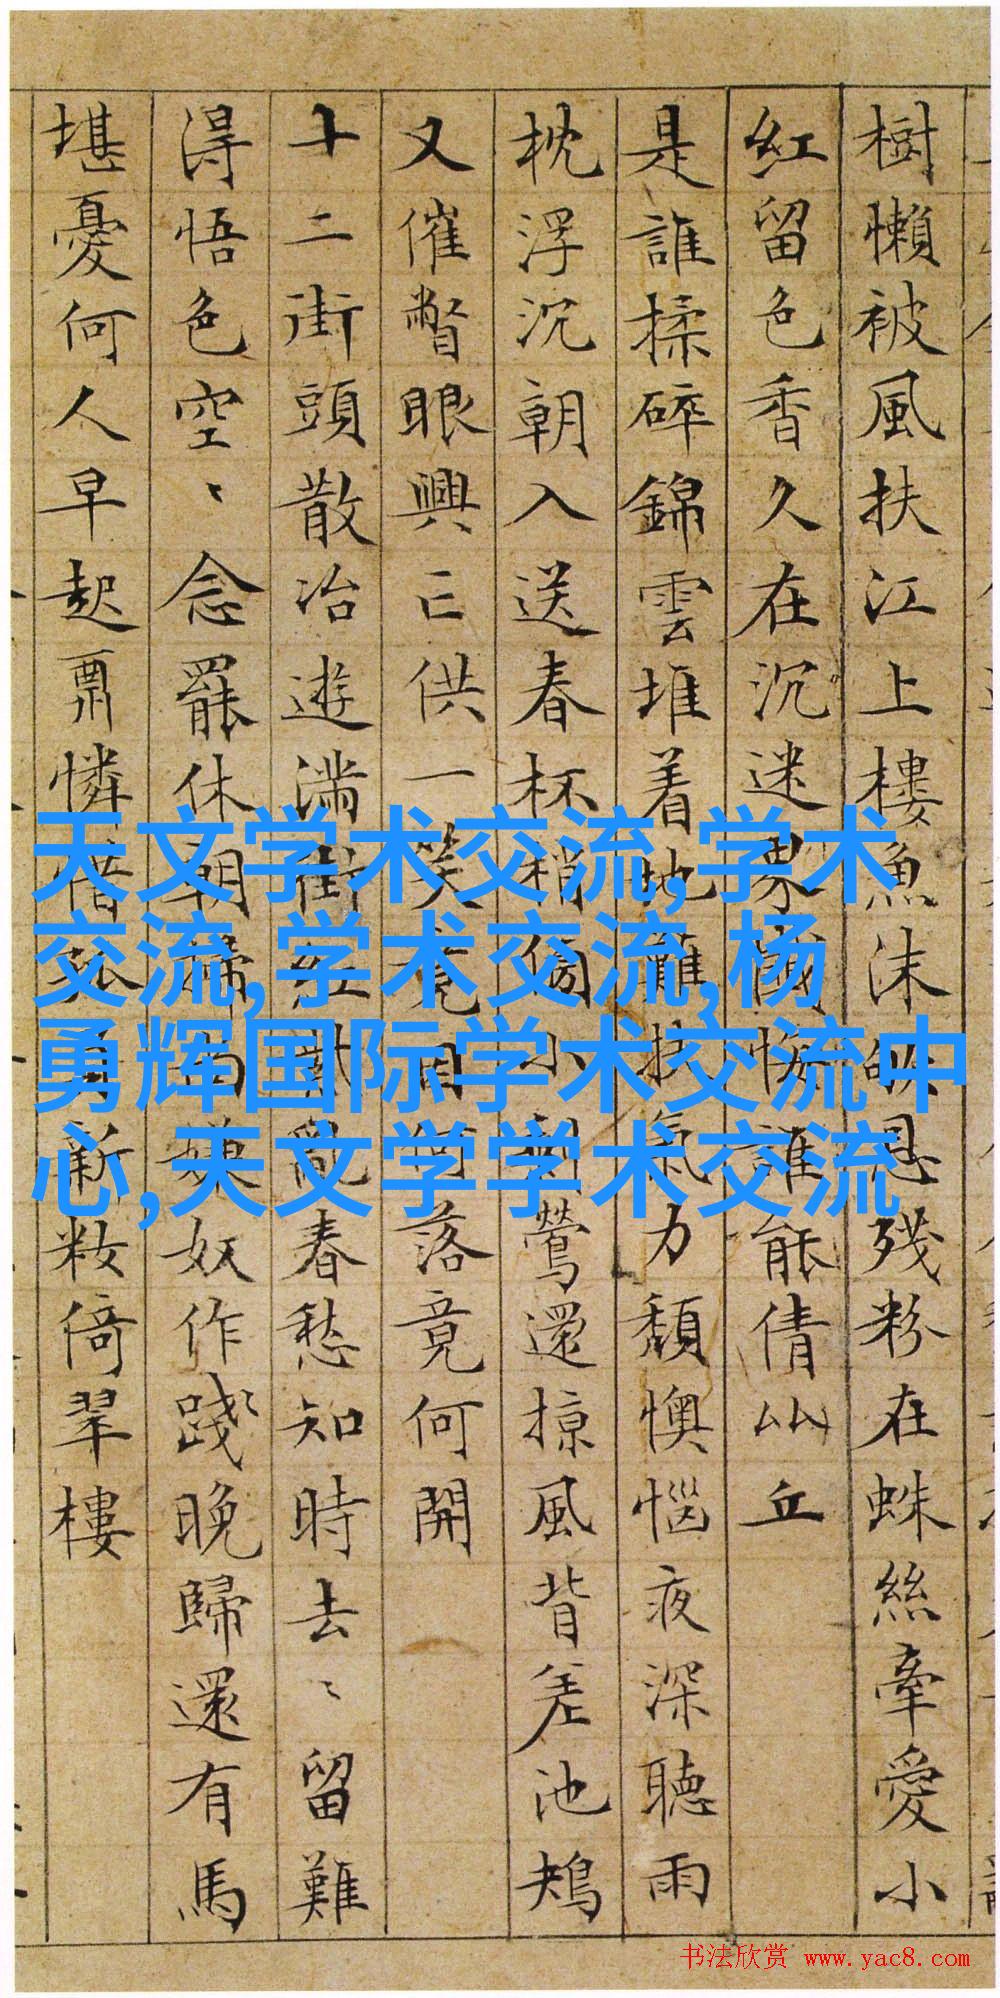 樹懶被風扶江上樓魚沫
殘粉在蛛絲牽愛小
紅留色香久在沉迷
誰能倩
丘
是誰揉碎錦雲堆着地難扶氣力頹懊惱夜深聽雨
枕浮沉朝入送春杯稍
小
鶯還掠風背差池鴂
又催瞥眼興亡供一笑竟
落竟何開
十二街頭散冶遊滿街紅
亂春愁知時去〻留難
得悟色空〻念罷休朝
嫌奴作踐〻晚歸還有馬
堪憂何人早起
憐惜
新妝倚翠樓
天文学术交流,学术
交流,学术交流,杨
勇辉国际学术交流中
心,天文学学术交流
书法欣赏 www.yac8.com